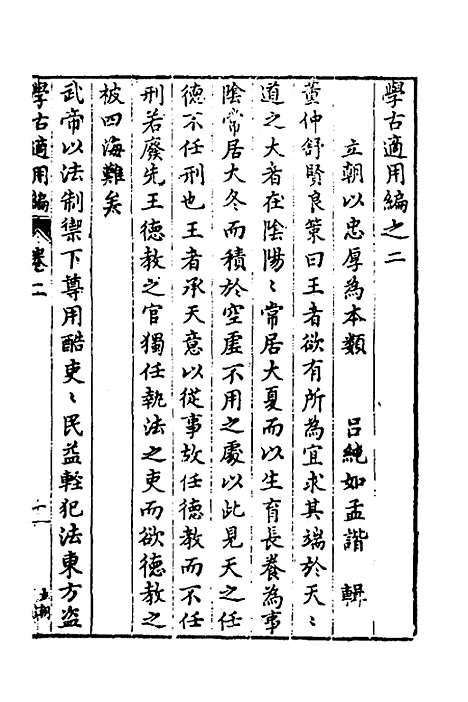 學古適用編之二
立朝以忠厚為本類 呂純如孟諧 輯
董仲舒賢良策曰王者欲有所為宜求其端於天〻
道之大者在陰陽〻常居大夏而以生育長養為事
陰常居大冬而積於空虛不用之處以此見天之任
德不任刑也王者承天意以從事故任德教而不任
刑若廢先王德教之官獨任執法之吏而欲德教之
被四海難矣
武帝以法制禦下尊用酷吏〻民益輕犯法東方盜
學古適用編 卷二 十一 立朝